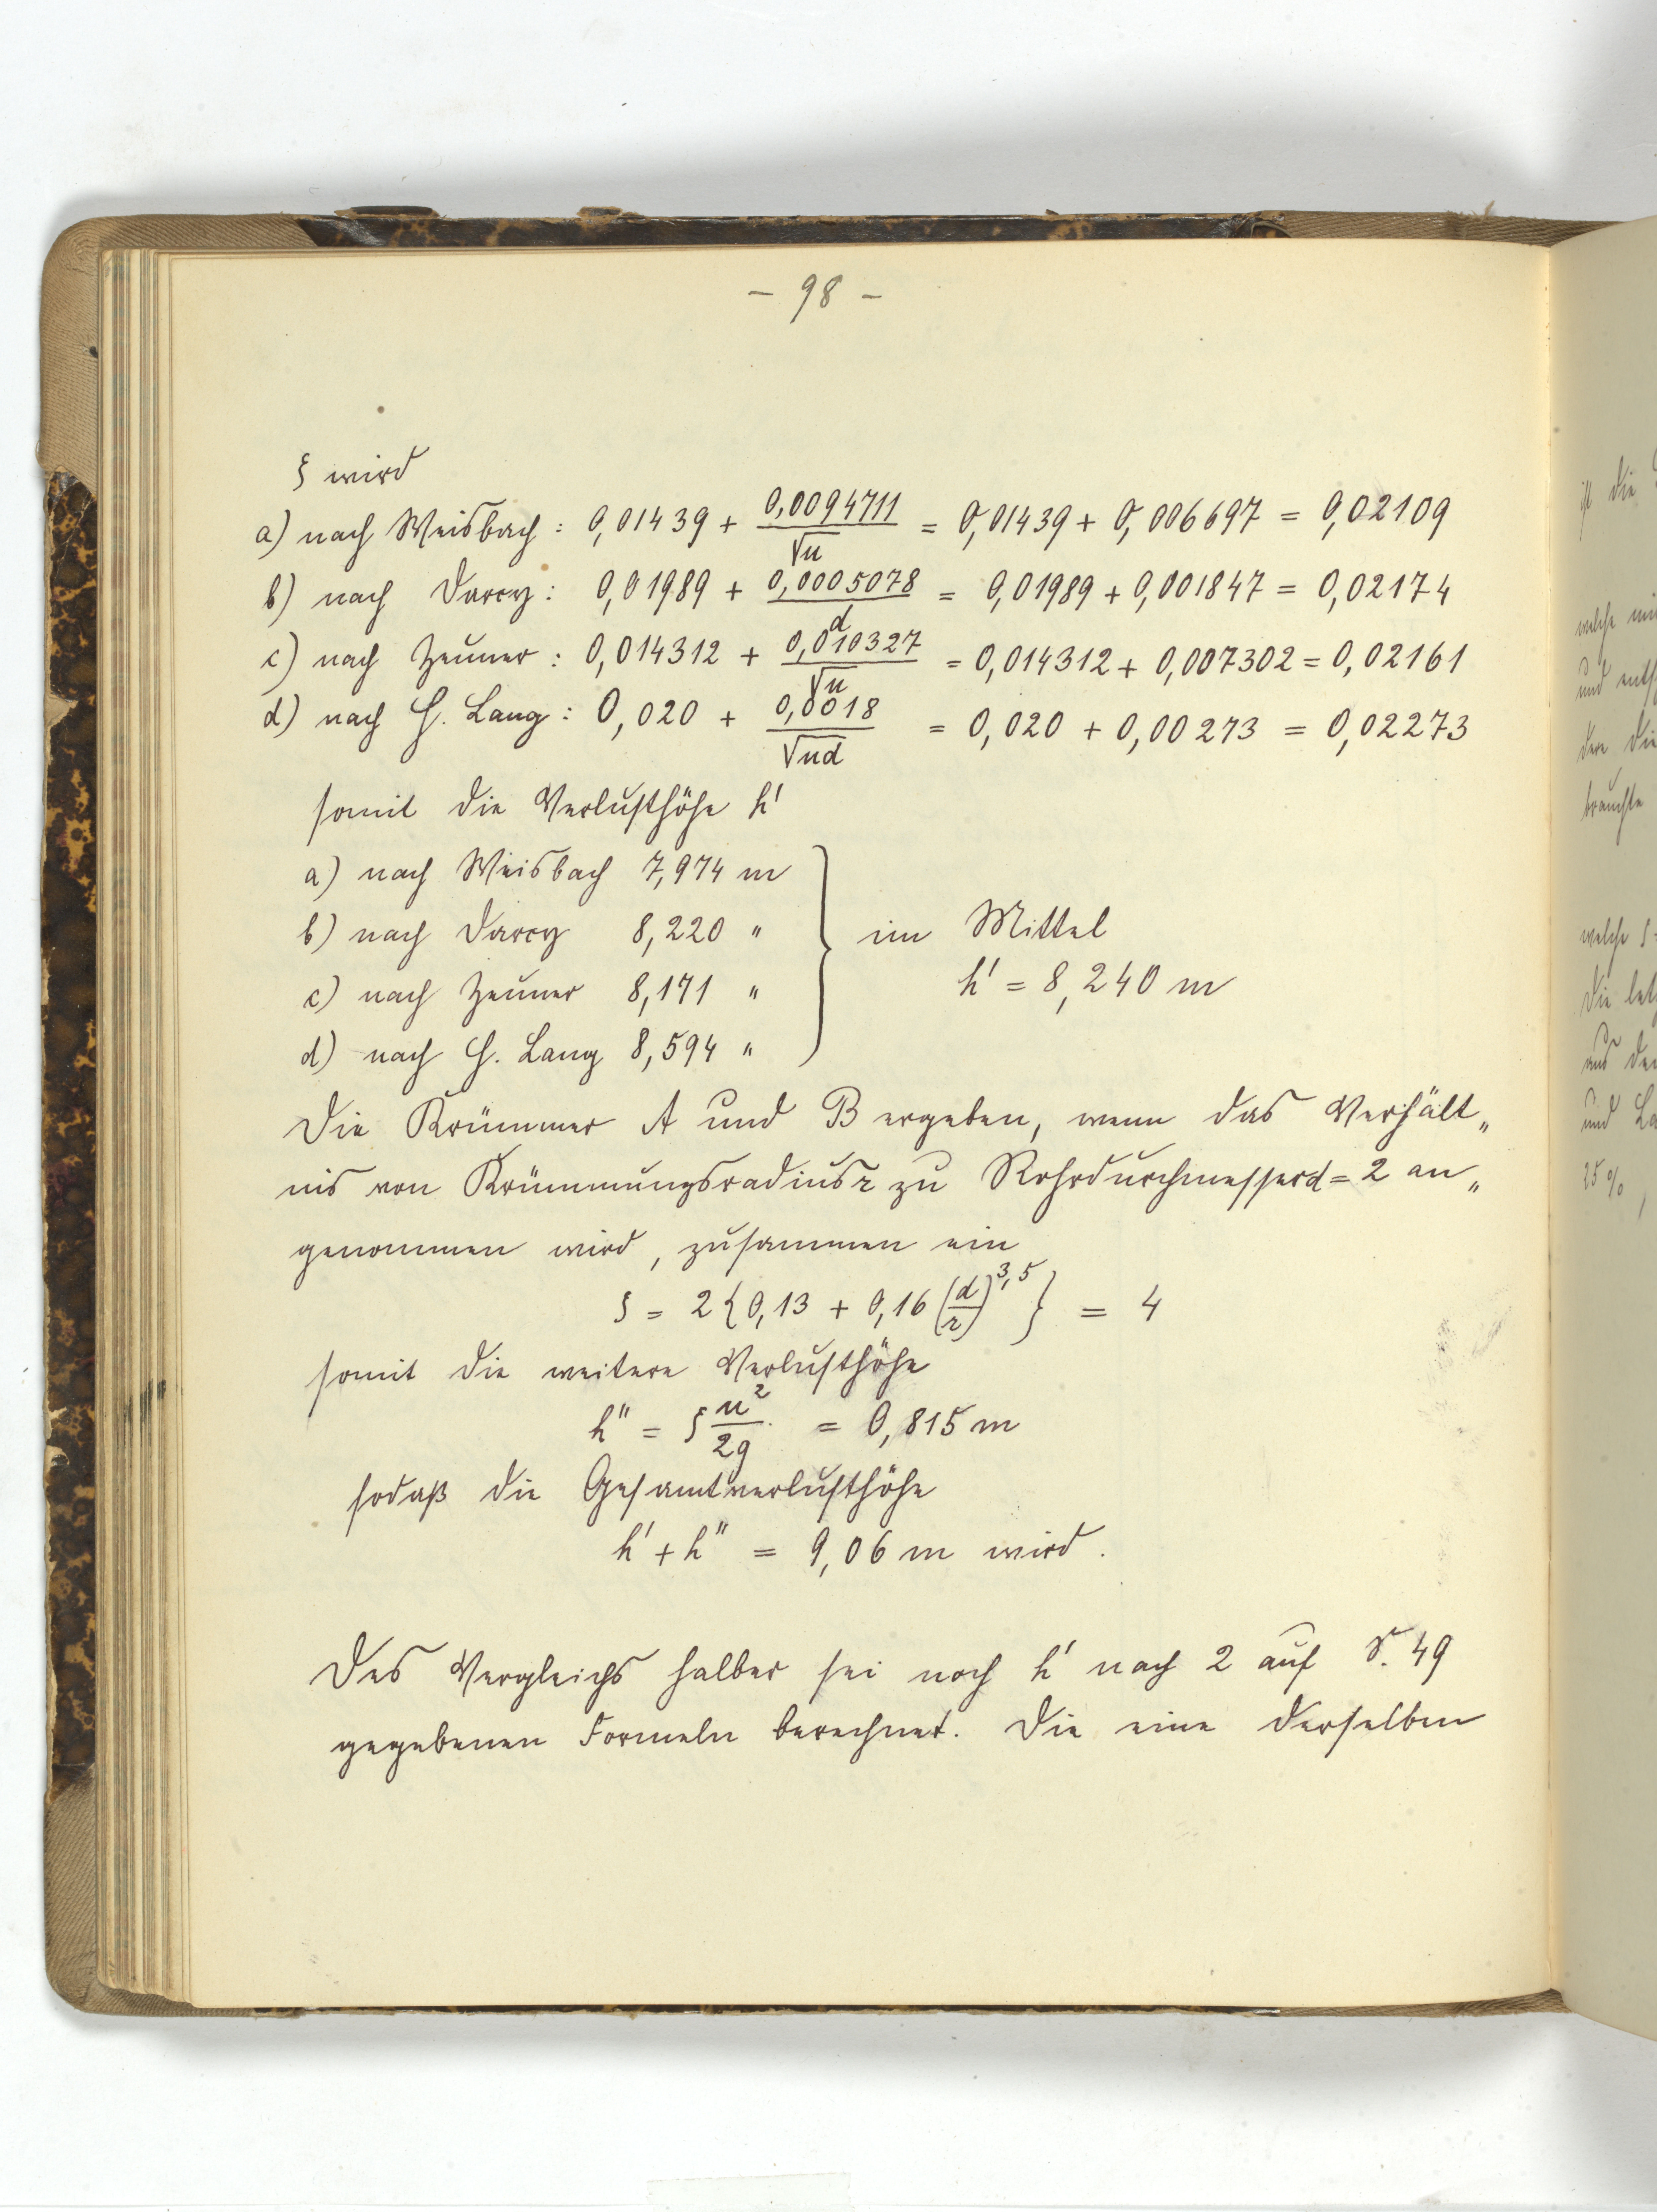 - 98 -
ξ wird
a) nach Weisbach: 0,01439 + 0,0094711/√u = 0,01439 + 0,006697 = 0,02109
b) nach Darcy: 0,01989 + 0,0005078/d = 0,01989 + 0,001847 = 0,02174
c) nach Zeuner: 0,014312 + 0,010327/√u = 0,014312 + 0,007302 = 0,02161
d) nach H. Lang: 0,020 + 0,0018/√ud = 0,020 + 0,00273 = 0,02273
somit die Verlusthöhe h'
a) nach Weisbach 7,974 m
b) nach Darcy 8,220 "
c) nach Zeuner 8,171 "
d) nach H. Lang 8,594 "
im Mittel
h' = 8,240 m
Die Krümmer A und B ergeben, wenn das Verhält„
nis von Krümmungsradius r zu Rohrdurchmesser d = 2 an„
genommen wird, zusammen ein
ξ = 2{0,13 + 0,16 (d/r)^3,5} = 4
somit die weitere Verlusthöhe
h" = ξ u²/2g = 0,815 m
sodaß die Gesamtverlusthöhe
h' + h" = 9,06 m wird.
Des Vergleichs halber sei noch h' nach 2 auf S. 49
gegebenen Formeln berechnet. Die eine derselben
ist die
welche
und
brauchte
welche
Die
aus
und
25%,